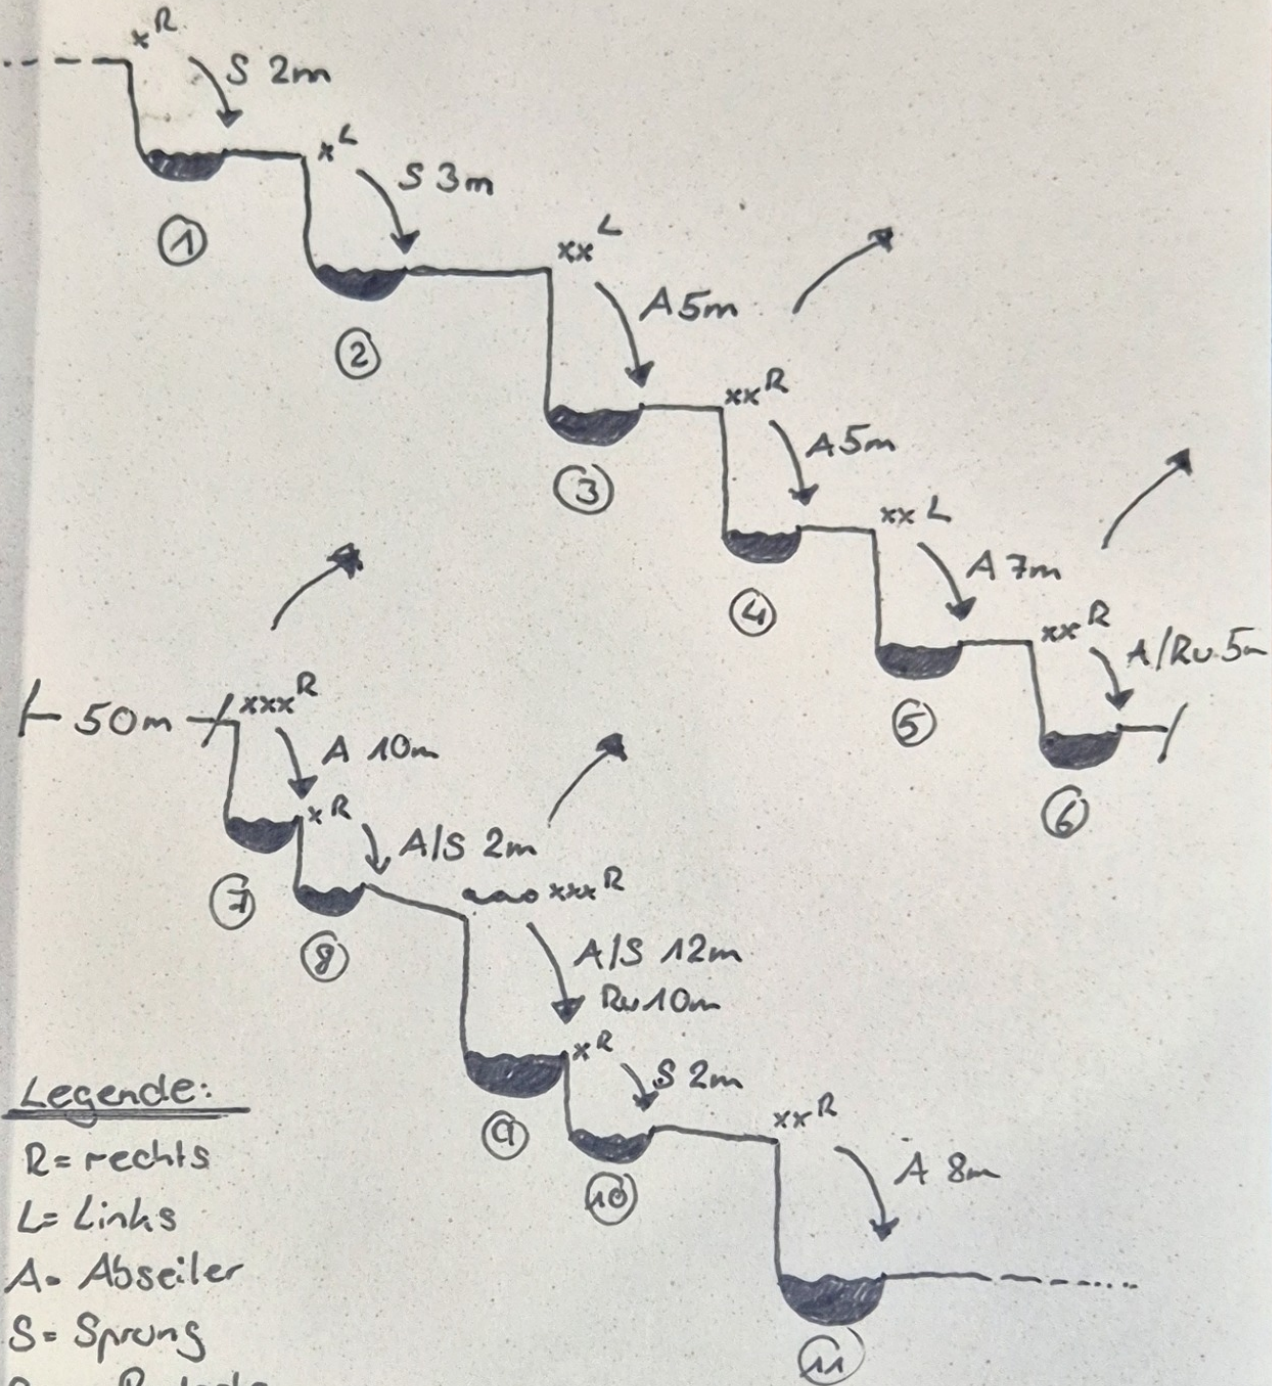 xR
S 2m
xL
S 3m
①
xxL
A 5m
②
xxR
A 5m
③
xx L
A 7m
④
xxR
A/Ru 5m
⑤
⑥
50m
xxxR
A 10m
xR
A/S 2m
⑦
xxxR
⑧
A/S 12m
Ru 10m
xR
S 2m
⑨
xxR
A 8m
⑩
⑪
Legende:
R= rechts
L= Links
A= Abseiler
S= Sprung